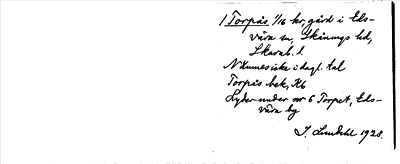 1 Torpås 1/16 kr, gård i Els-
vära sn, Skånings hd,
Skarab. l.
Nämnes icke i dagl. tal
Torpås bek, Kb
Lyder under nr 6 Torpet, Els-
vära by
J. Lundahl 1928.